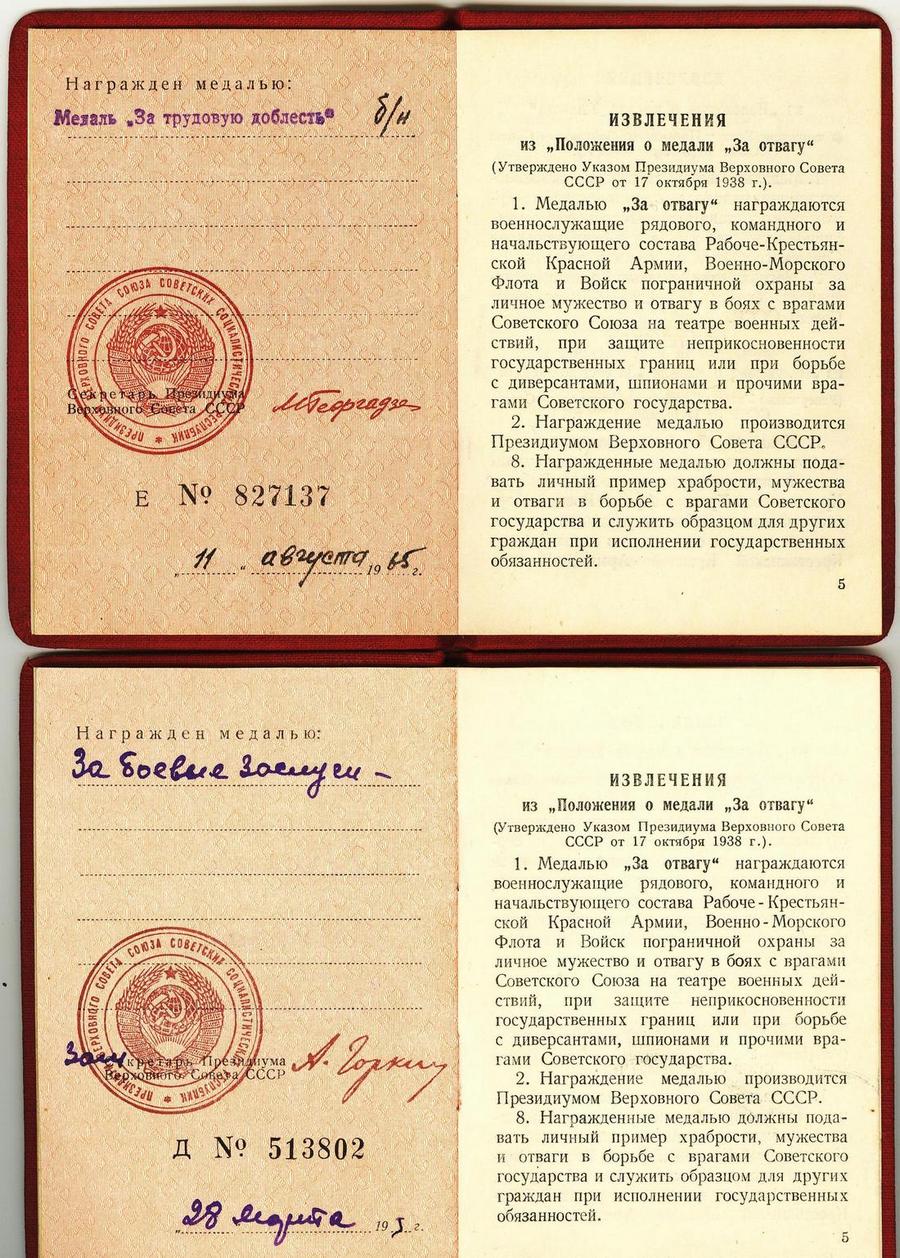 Награжден медалью:
Медаль „За трудовую доблесть“ б/н
ПРЕЗИДИУМ ВЕРХОВНОГО СОВЕТА СОЮЗА СОВЕТСКИХ СОЦИАЛИСТИЧЕСКИХ РЕСПУБЛИК
Секретарь Президиума
Верховного Совета СССР
МГеоргадзе
Е № 827137
„11“ августа 1965г.
ИЗВЛЕЧЕНИЯ
из „Положения о медали „За отвагу“
(Утверждено Указом Президиума Верховного Совета
СССР от 17 октября 1938 г.).
1. Медалью „За отвагу“ награждаются
военнослужащие рядового, командного и
начальствующего состава Рабоче-Крестьян-
ской Красной Армии, Военно-Морского
Флота и Войск пограничной охраны за
личное мужество и отвагу в боях с врагами
Советского Союза на театре военных дей-
ствий, при защите неприкосновенности
государственных границ или при борьбе
с диверсантами, шпионами и прочими вра-
гами Советского государства.
2. Награждение медалью производится
Президиумом Верховного Совета СССР.
8. Награжденные медалью должны пода-
вать личный пример храбрости, мужества
и отваги в борьбе с врагами Советского
государства и служить образцом для других
граждан при исполнении государственных
обязанностей.
5
Награжден медалью:
За боевые заслуги –
ПРЕЗИДИУМ ВЕРХОВНОГО СОВЕТА СОЮЗА СОВЕТСКИХ СОЦИАЛИСТИЧЕСКИХ РЕСПУБЛИК
Зам
Секретарь Президиума
Верховного Совета СССР
А. Горкин
Д № 513802
„28 марта 195 г.
ИЗВЛЕЧЕНИЯ
из „Положения о медали „За отвагу“
(Утверждено Указом Президиума Верховного Совета
СССР от 17 октября 1938 г.).
1. Медалью „За отвагу“ награждаются
военнослужащие рядового, командного и
начальствующего состава Рабоче-Крестьян-
ской Красной Армии, Военно-Морского
Флота и Войск пограничной охраны за
личное мужество и отвагу в боях с врагами
Советского Союза на театре военных дей-
ствий, при защите неприкосновенности
государственных границ или при борьбе
с диверсантами, шпионами и прочими вра-
гами Советского государства.
2. Награждение медалью производится
Президиумом Верховного Совета СССР.
8. Награжденные медалью должны пода-
вать личный пример храбрости, мужества
и отваги в борьбе с врагами Советского
государства и служить образцом для других
граждан при исполнении государственных
обязанностей.
5